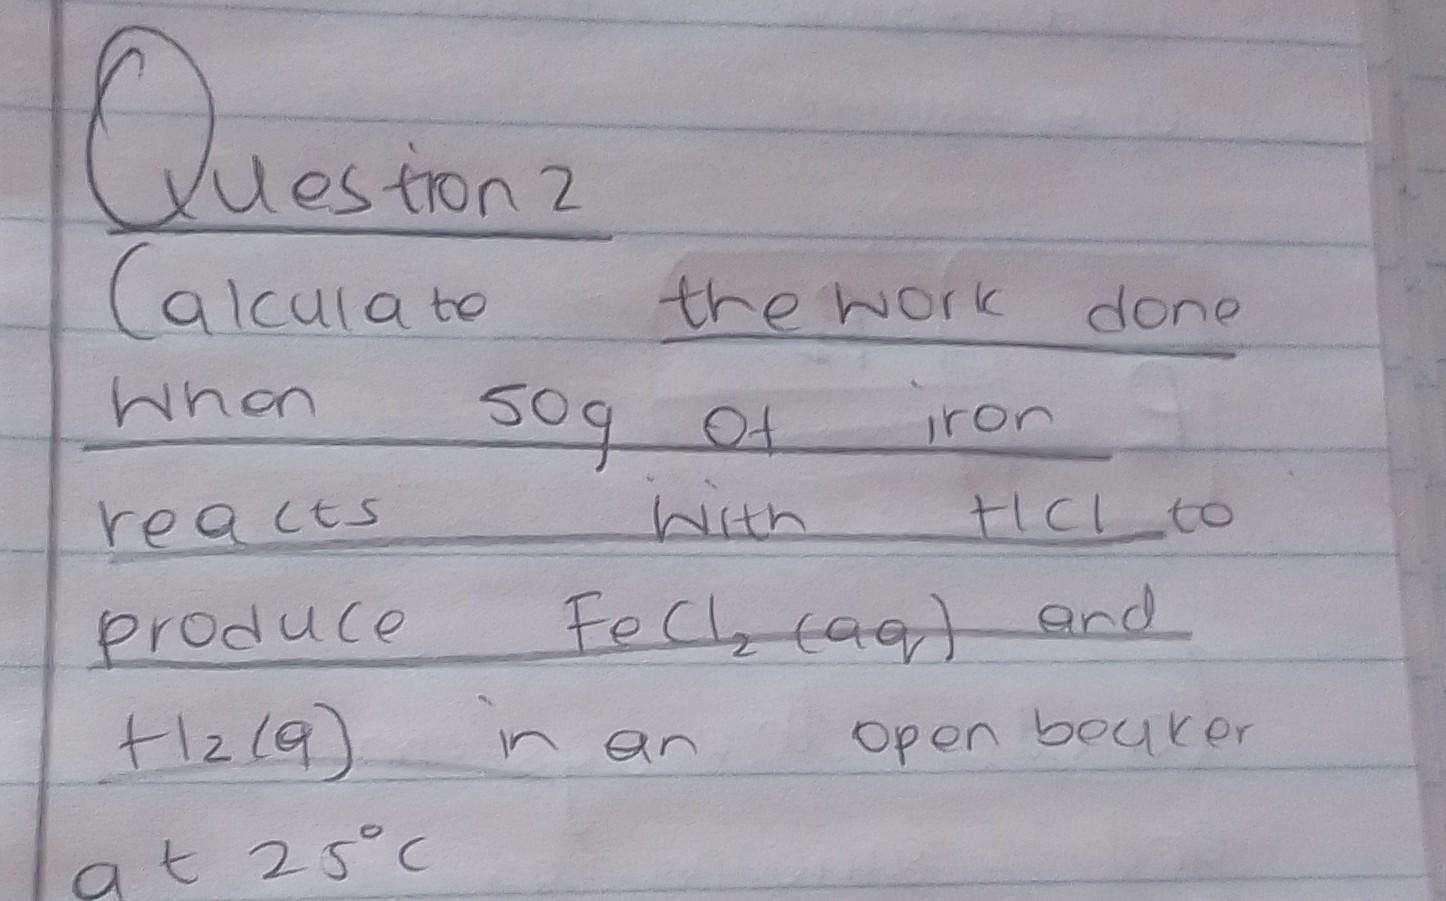 Question 2
Calculate the work done
when 50g of iron
reacts with HCl to
produce FeCl₂ (aq) and
H₂(g) in an open beaker
at 25°C